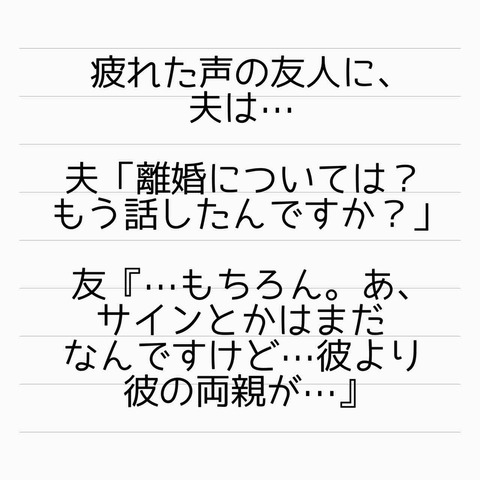 疲れた声の友人に、
夫は…
夫「離婚については？
もう話したんですか？」
友『…もちろん。あ、
サインとかはまだ
なんですけど…彼より
彼の両親が…』